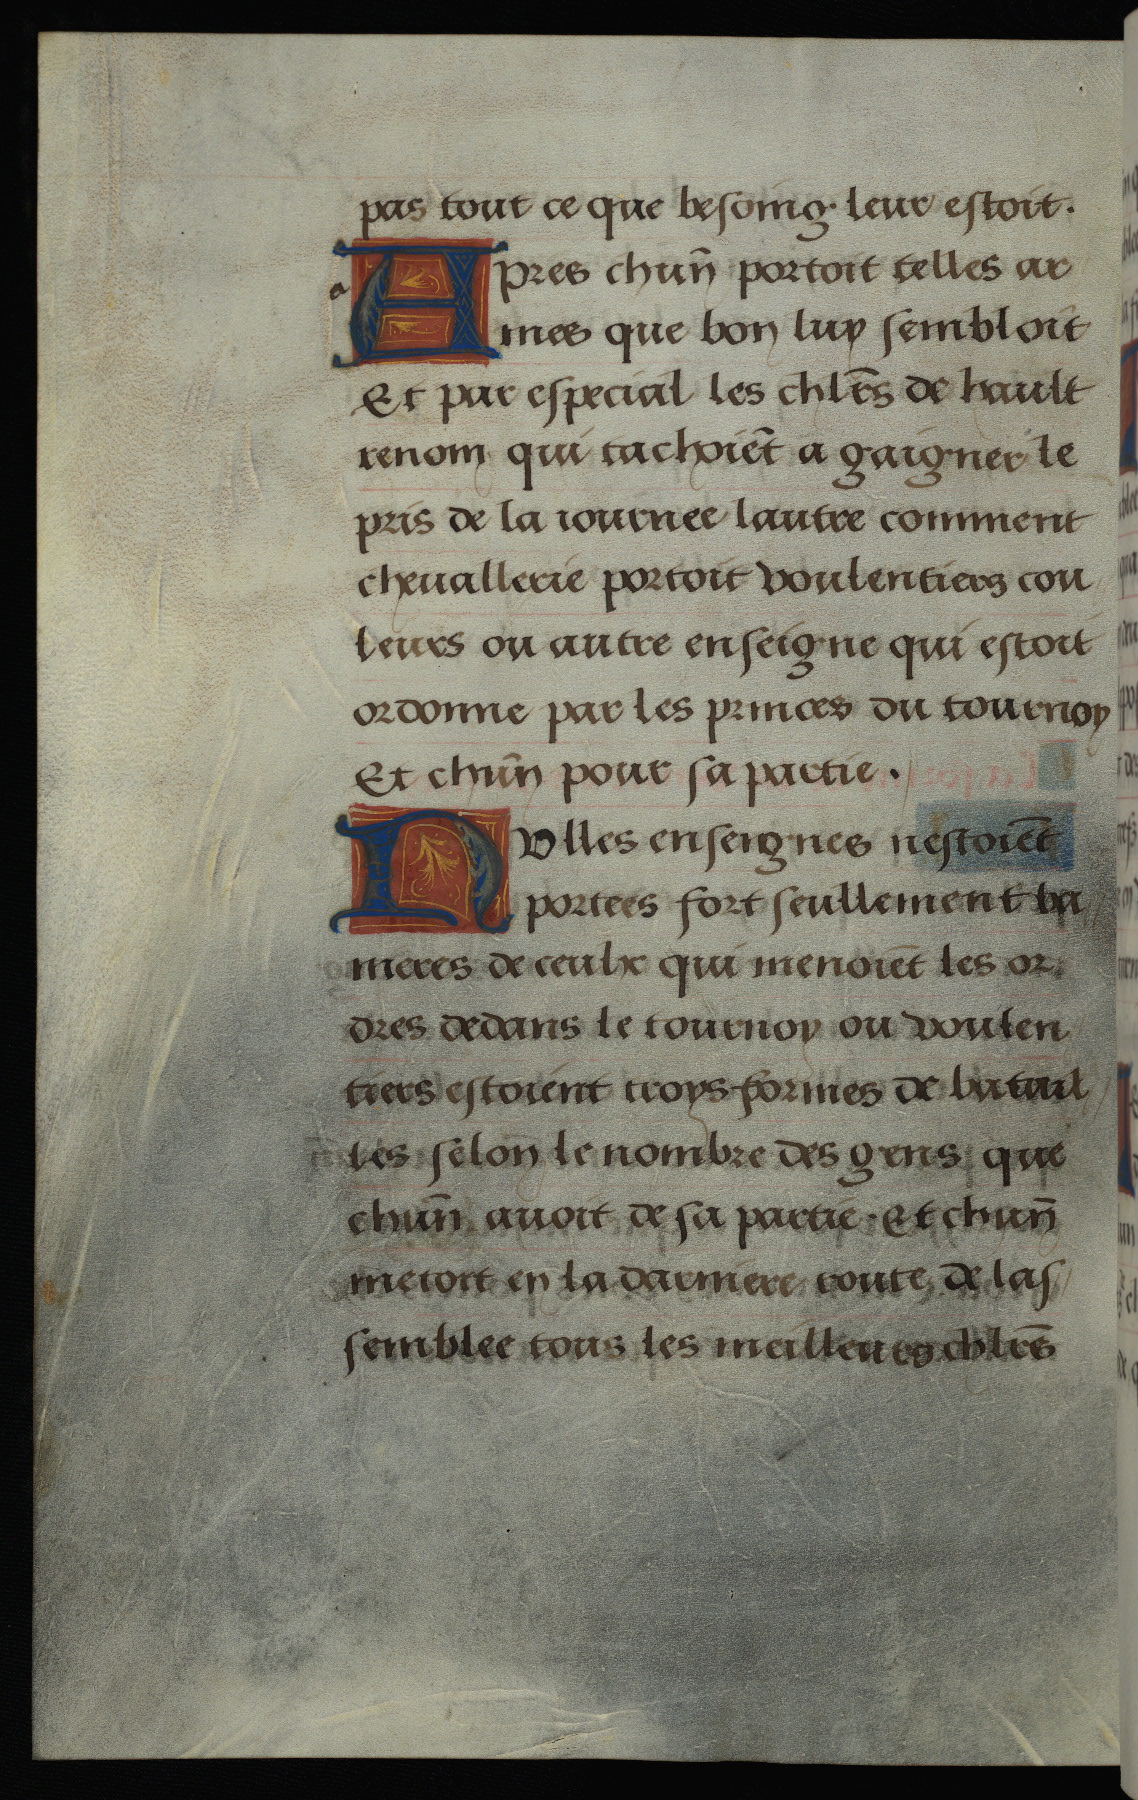 pas tout ce que besoing leur estoit.
Apres chun̄ portoit telles ar
mes que bon luy sembloit
Et par especial les chlr̄s de hault
renom qui tachoiēt a gaigner le
pris de la iournee lautre comment
cheuallerie portoit voulentiers cou
leurs ou autre enseigne qui estoit
ordonne par les princes du tournoy
Et chun̄ pour sa partie.
NVlles enseignes nestoiēt
portees fort seullement ba
nieres de ceulx qui menoiēt les or
dres dedans le tournoy ou voulen
tiers estoient troys formes de batail
les selon le nombre des gens que
chun̄ auoit de sa partie. Et chun̄
metoit en la darniere route de las
semblee tous les meilleurs chlrs̄